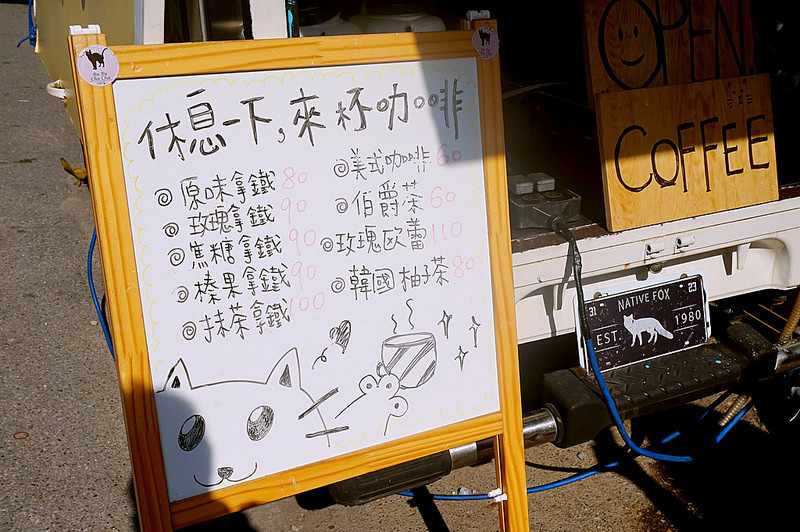 休息一下,來杯咖啡
◎原味拿鐵 80
◎玫瑰拿鐵 90
◎焦糖拿鐵 90
◎榛果拿鐵 90
◎抹茶拿鐵 100
◎美式咖啡 60
◎伯爵茶 60
◎玫瑰欧蕾 110
◎韓國柚子茶 80
OPEN
COFFEE
31 NATIVE FOX 23
EST. 1980